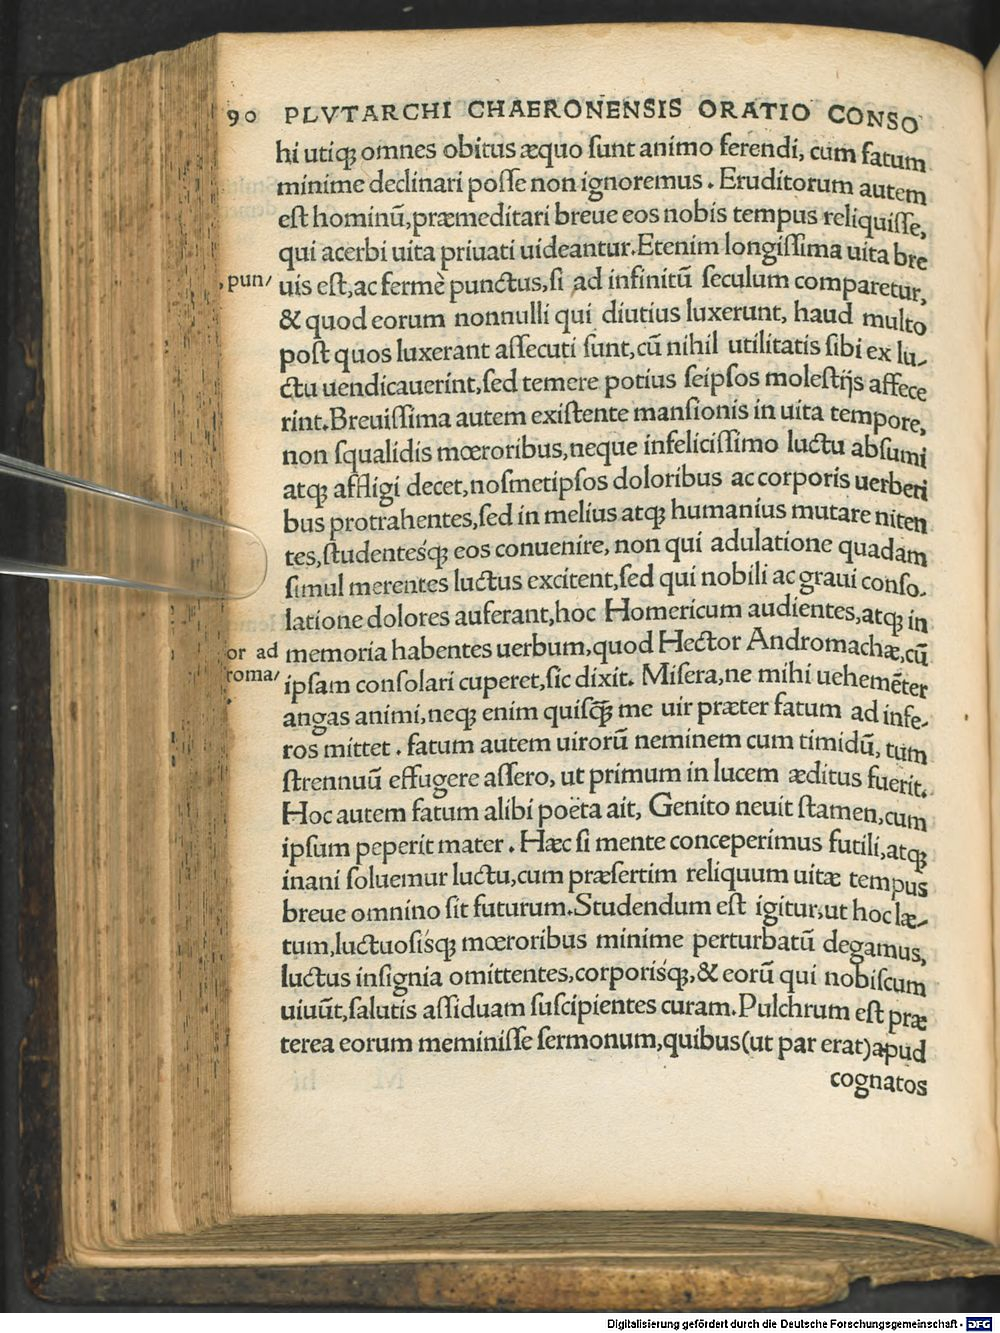 90 PLVTARCHI CHAERONENSIS ORATIO CONSO
hi utiqꝫ omnes obitus æquo ſunt animo ferendi, cum fatum
minime declinari poſſe non ignoremus. Eruditorum autem
eſt hominũ, præmeditari breue eos nobis tempus reliquiſſe,
qui acerbi uita priuati uideantur. Etenim longiſſima uita bre
pun/
uis eſt, ac fermè punctus, ſi ad infinitũ ſeculum comparetur,
& quod eorum nonnulli qui diutius luxerunt, haud multo
poſt quos luxerant aſſecuti ſunt, cũ nihil utilitatis ſibi ex lu/
ctu uendicauerint, ſed temere potius ſeipſos moleſtijs affece
rint. Breuiſſima autem exiſtente manſionis in uita tempore,
non ſqualidis mœroribus, neque infeliciſſimo luctu abſumi
atqꝫ affligi decet, noſmetipſos doloribus ac corporis uerberi
bus protrahentes, ſed in melius atqꝫ humanius mutare niten
tes, ſtudentesq́ꝫ eos conuenire, non qui adulatione quadam
ſimul merentes luctus excitent, ſed qui nobili ac graui conſo/
latione dolores auferant, hoc Homericum audientes, atqꝫ in
or ad
memoria habentes uerbum, quod Hector Andromachæ, cũ
roma/
ipſam conſolari cuperet, ſic dixit. Miſera, ne mihi uehemẽter
angas animi, neqꝫ enim quiſq̃ꝫ me uir præter fatum ad infe/
ros mittet. fatum autem uirorũ neminem cum timidũ, tum
ſtrennuũ effugere aſſero, ut primum in lucem æditus fuerit.
Hoc autem fatum alibi poëta ait, Genito neuit ſtamen, cum
ipſum peperit mater. Hæc ſi mente conceperimus futili, atqꝫ
inani ſoluemur luctu, cum præſertim reliquum uitæ tempus
breue omnino ſit futurum. Studendum eſt igitur, ut hoc læ/
tum, luctuoſisq́ꝫ mœroribus minime perturbatũ degamus,
luctus inſignia omittentes, corporisq́ꝫ, & eorũ qui nobiſcum
uiuũt, ſalutis aſſiduam ſuſcipientes curam. Pulchrum eſt præ
terea eorum meminiſſe ſermonum, quibus (ut par erat) apud
cognatos
Digitalisierung gefördert durch die Deutsche Forschungsgemeinschaft - DFG